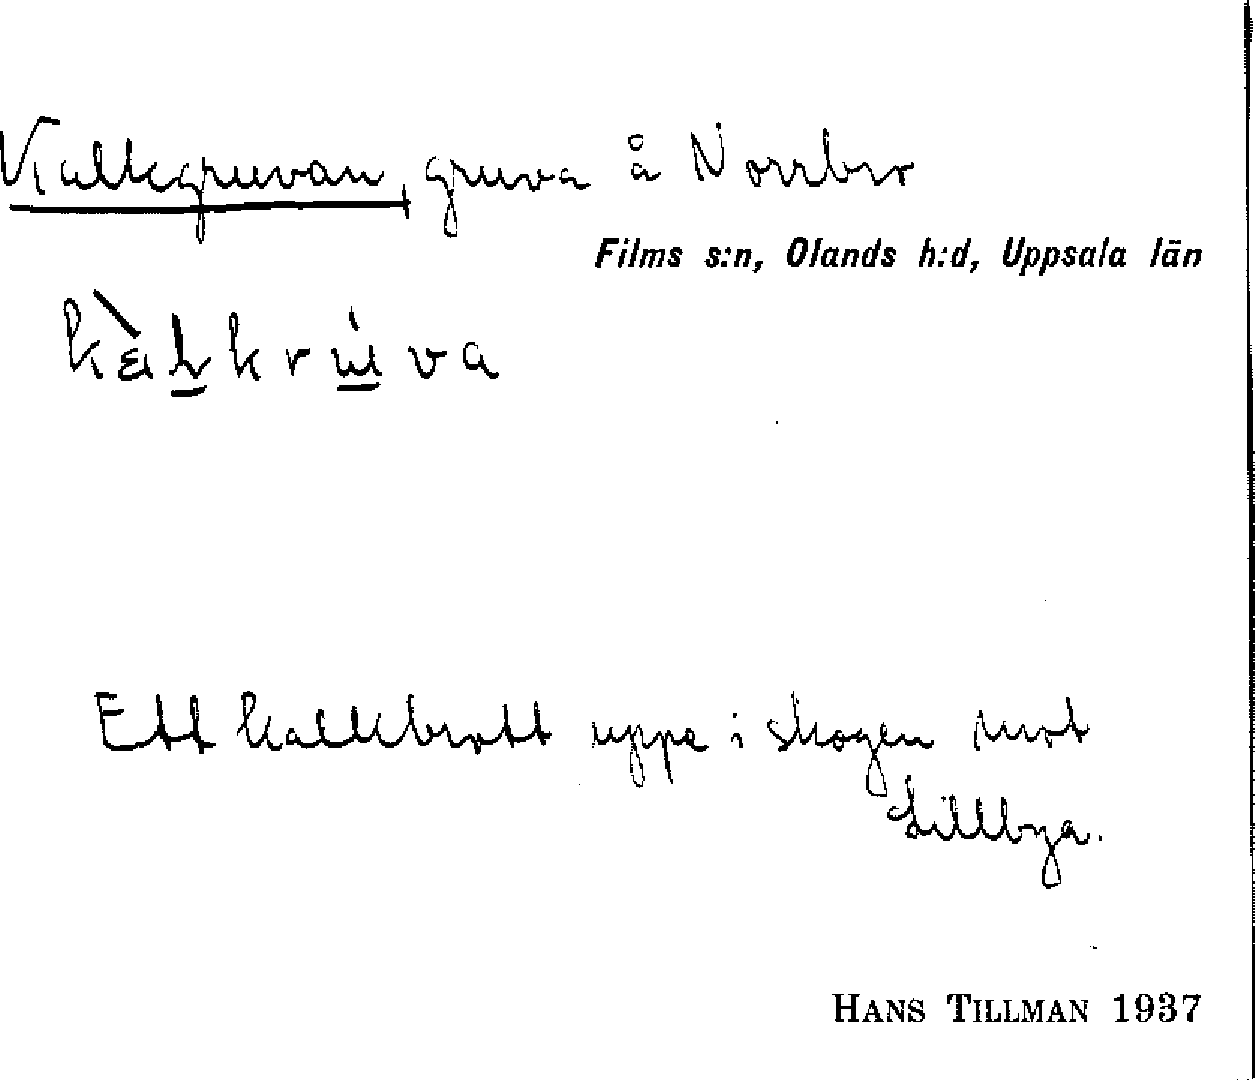 Kalkgruvan, gruva å Norrbro
Films s:n, Olands h:d, Uppsala län
Ett kalkbrott uppe i skogen mot
Lillbya.
HANS TILLMAN 1937